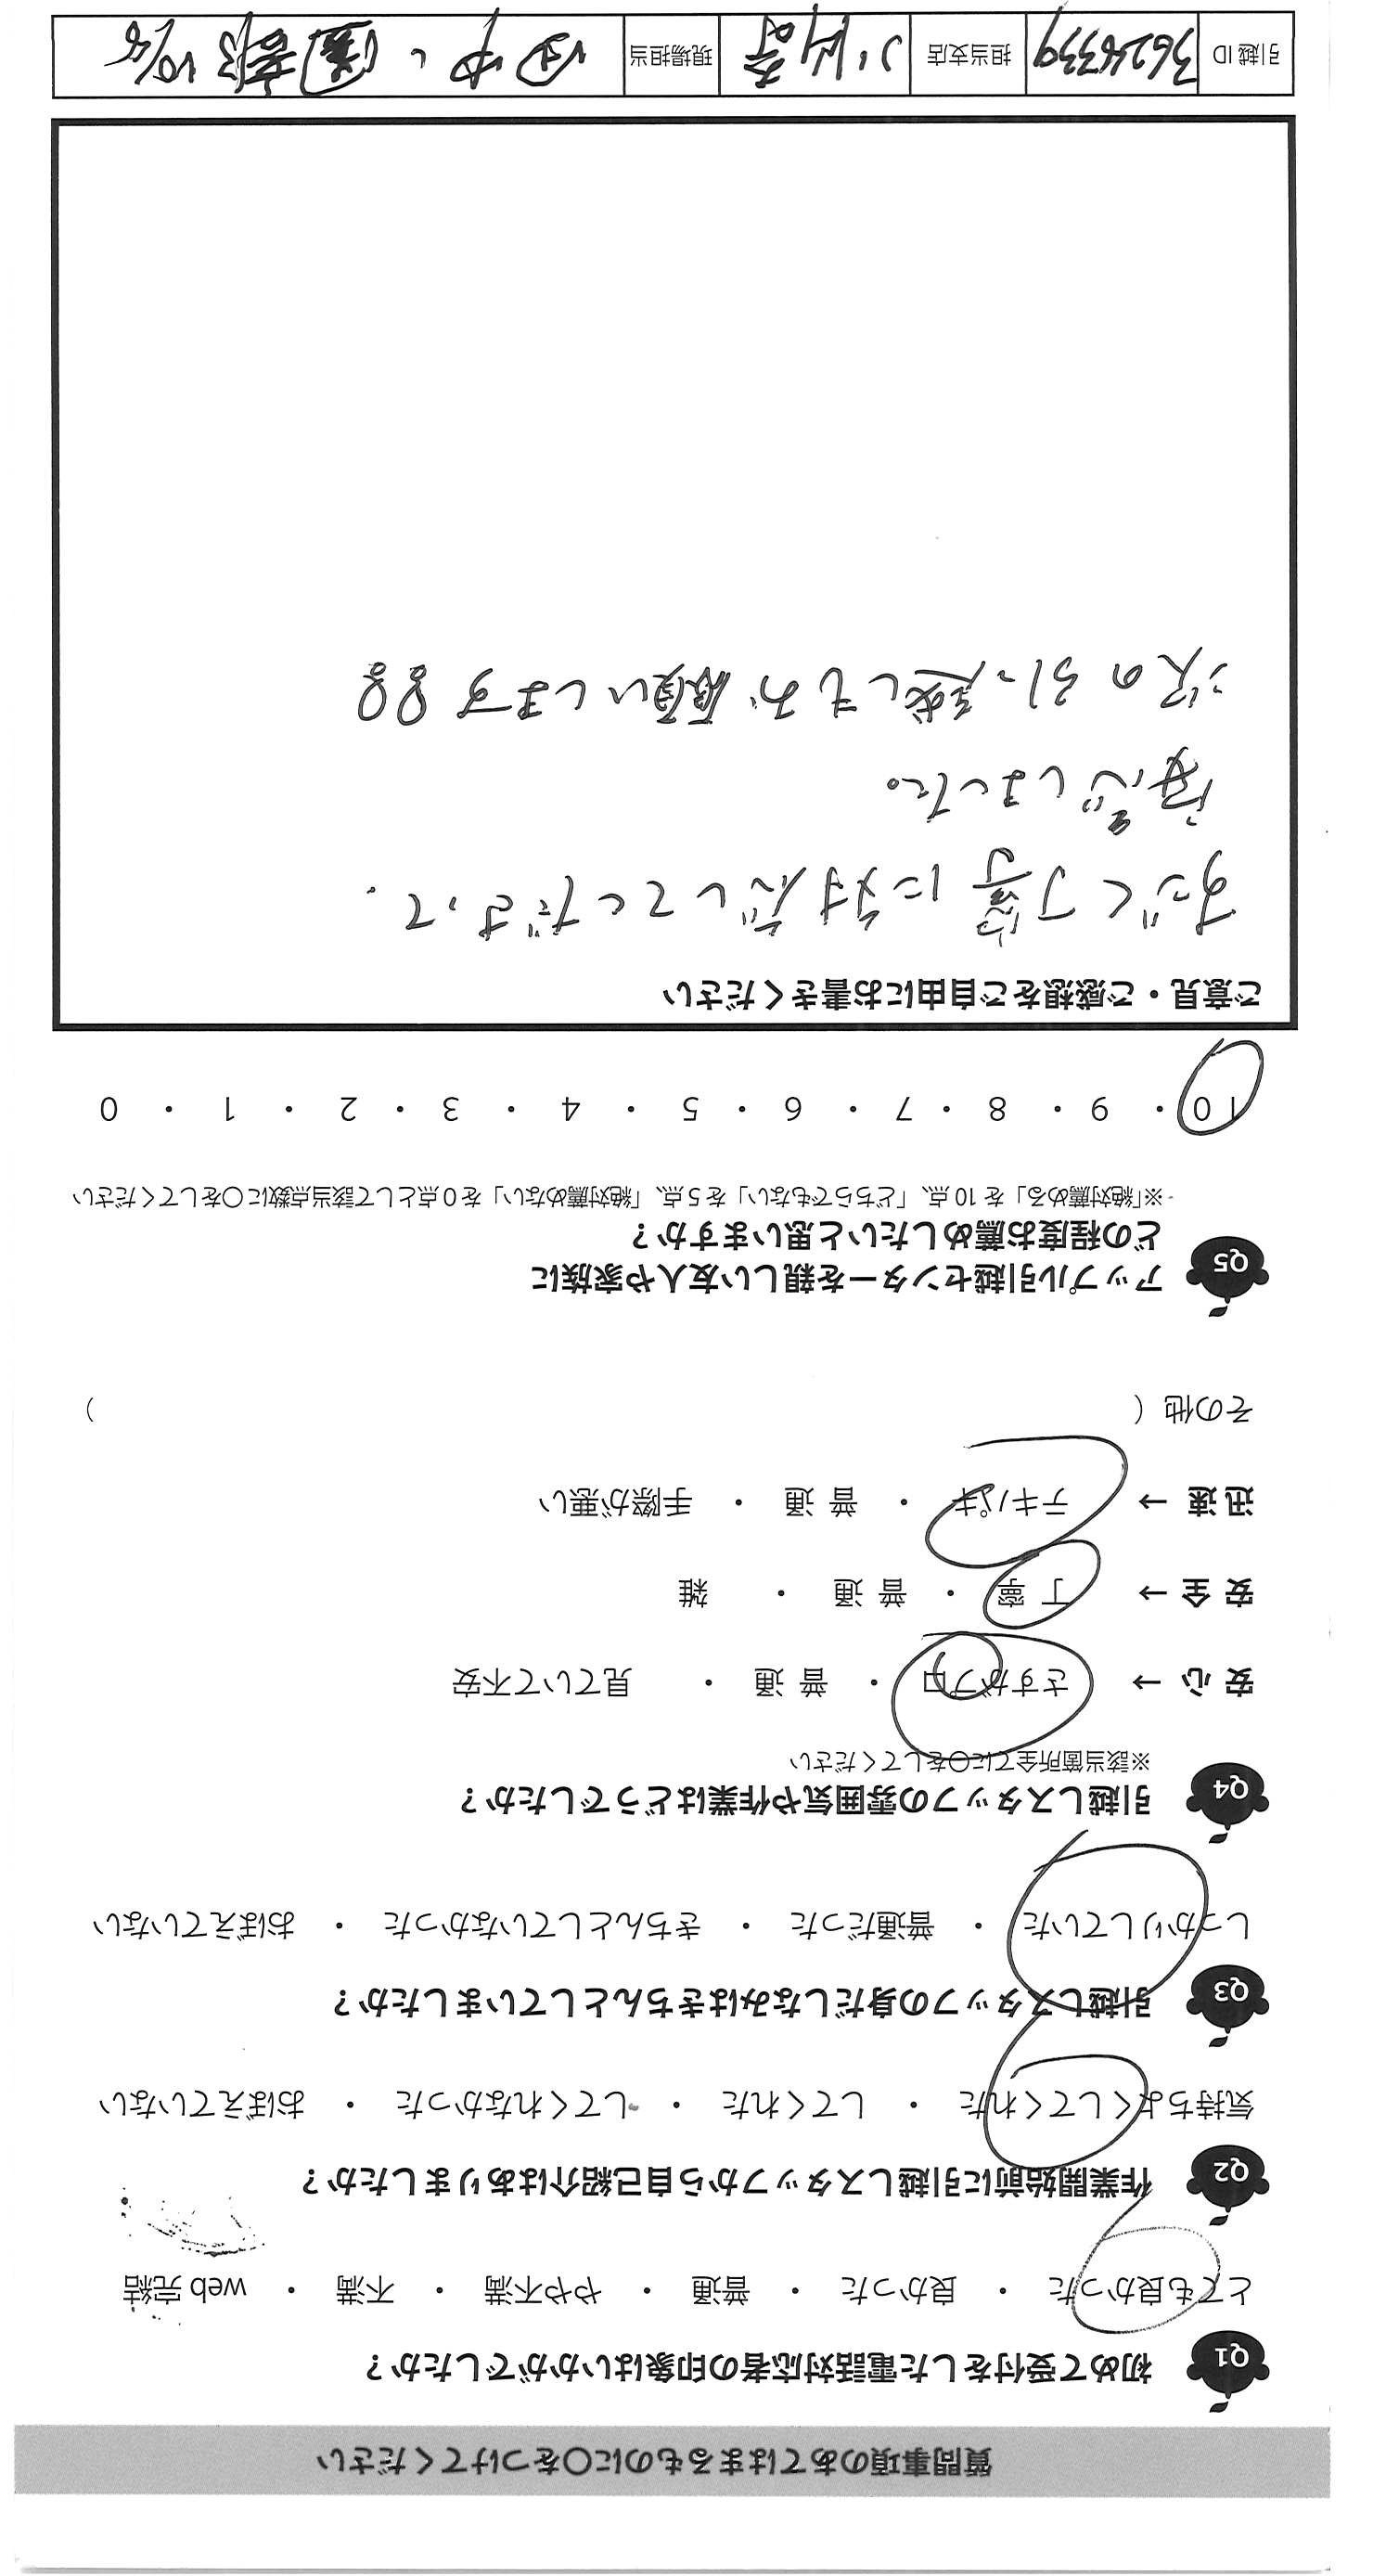 質問事項のあてはまるものに〇をつけてください
Q1 初めて受付をした電話対応者の印象はいかがでしたか？
とても良かった ・ 良かった ・ 普通 ・ やや不満 ・ 不満 ・ web 完結
Q2 作業開始前に引越しスタッフから自己紹介はありましたか？
気持ちよくしてくれた ・ してくれた ・ してくれなかった ・ おぼえていない
Q3 引越しスタッフの身だしなみはきちんとしていましたか？
しっかりしていた ・ 普通だった ・ きちんとしていなかった ・ おぼえていない
Q4 引越しスタッフの雰囲気や作業はどうでしたか？
※該当箇所全てに〇をしてください
安 心 → さすがプロ ・ 普 通 ・ 見ていて不安
安 全 → 丁 寧 ・ 普 通 ・ 雑
迅 速 → テキパキ ・ 普 通 ・ 手際が悪い
その他（ ）
Q5 アップル引越センターを親しい友人や家族に
どの程度お薦めしたいと思いますか？
※「絶対薦める」を 10 点、「どちらでもない」を 5 点、「絶対薦めない」を 0 点として該当点数に〇をしてください
10 ・ 9 ・ 8 ・ 7 ・ 6 ・ 5 ・ 4 ・ 3 ・ 2 ・ 1 ・ 0
ご意見・ご感想をご自由にお書きください
すごく丁寧に対応してくださって、
安心しました。
次の引っ越しもお願いします!!
引越 ID 3624339 担当支店 現場担当 田中、